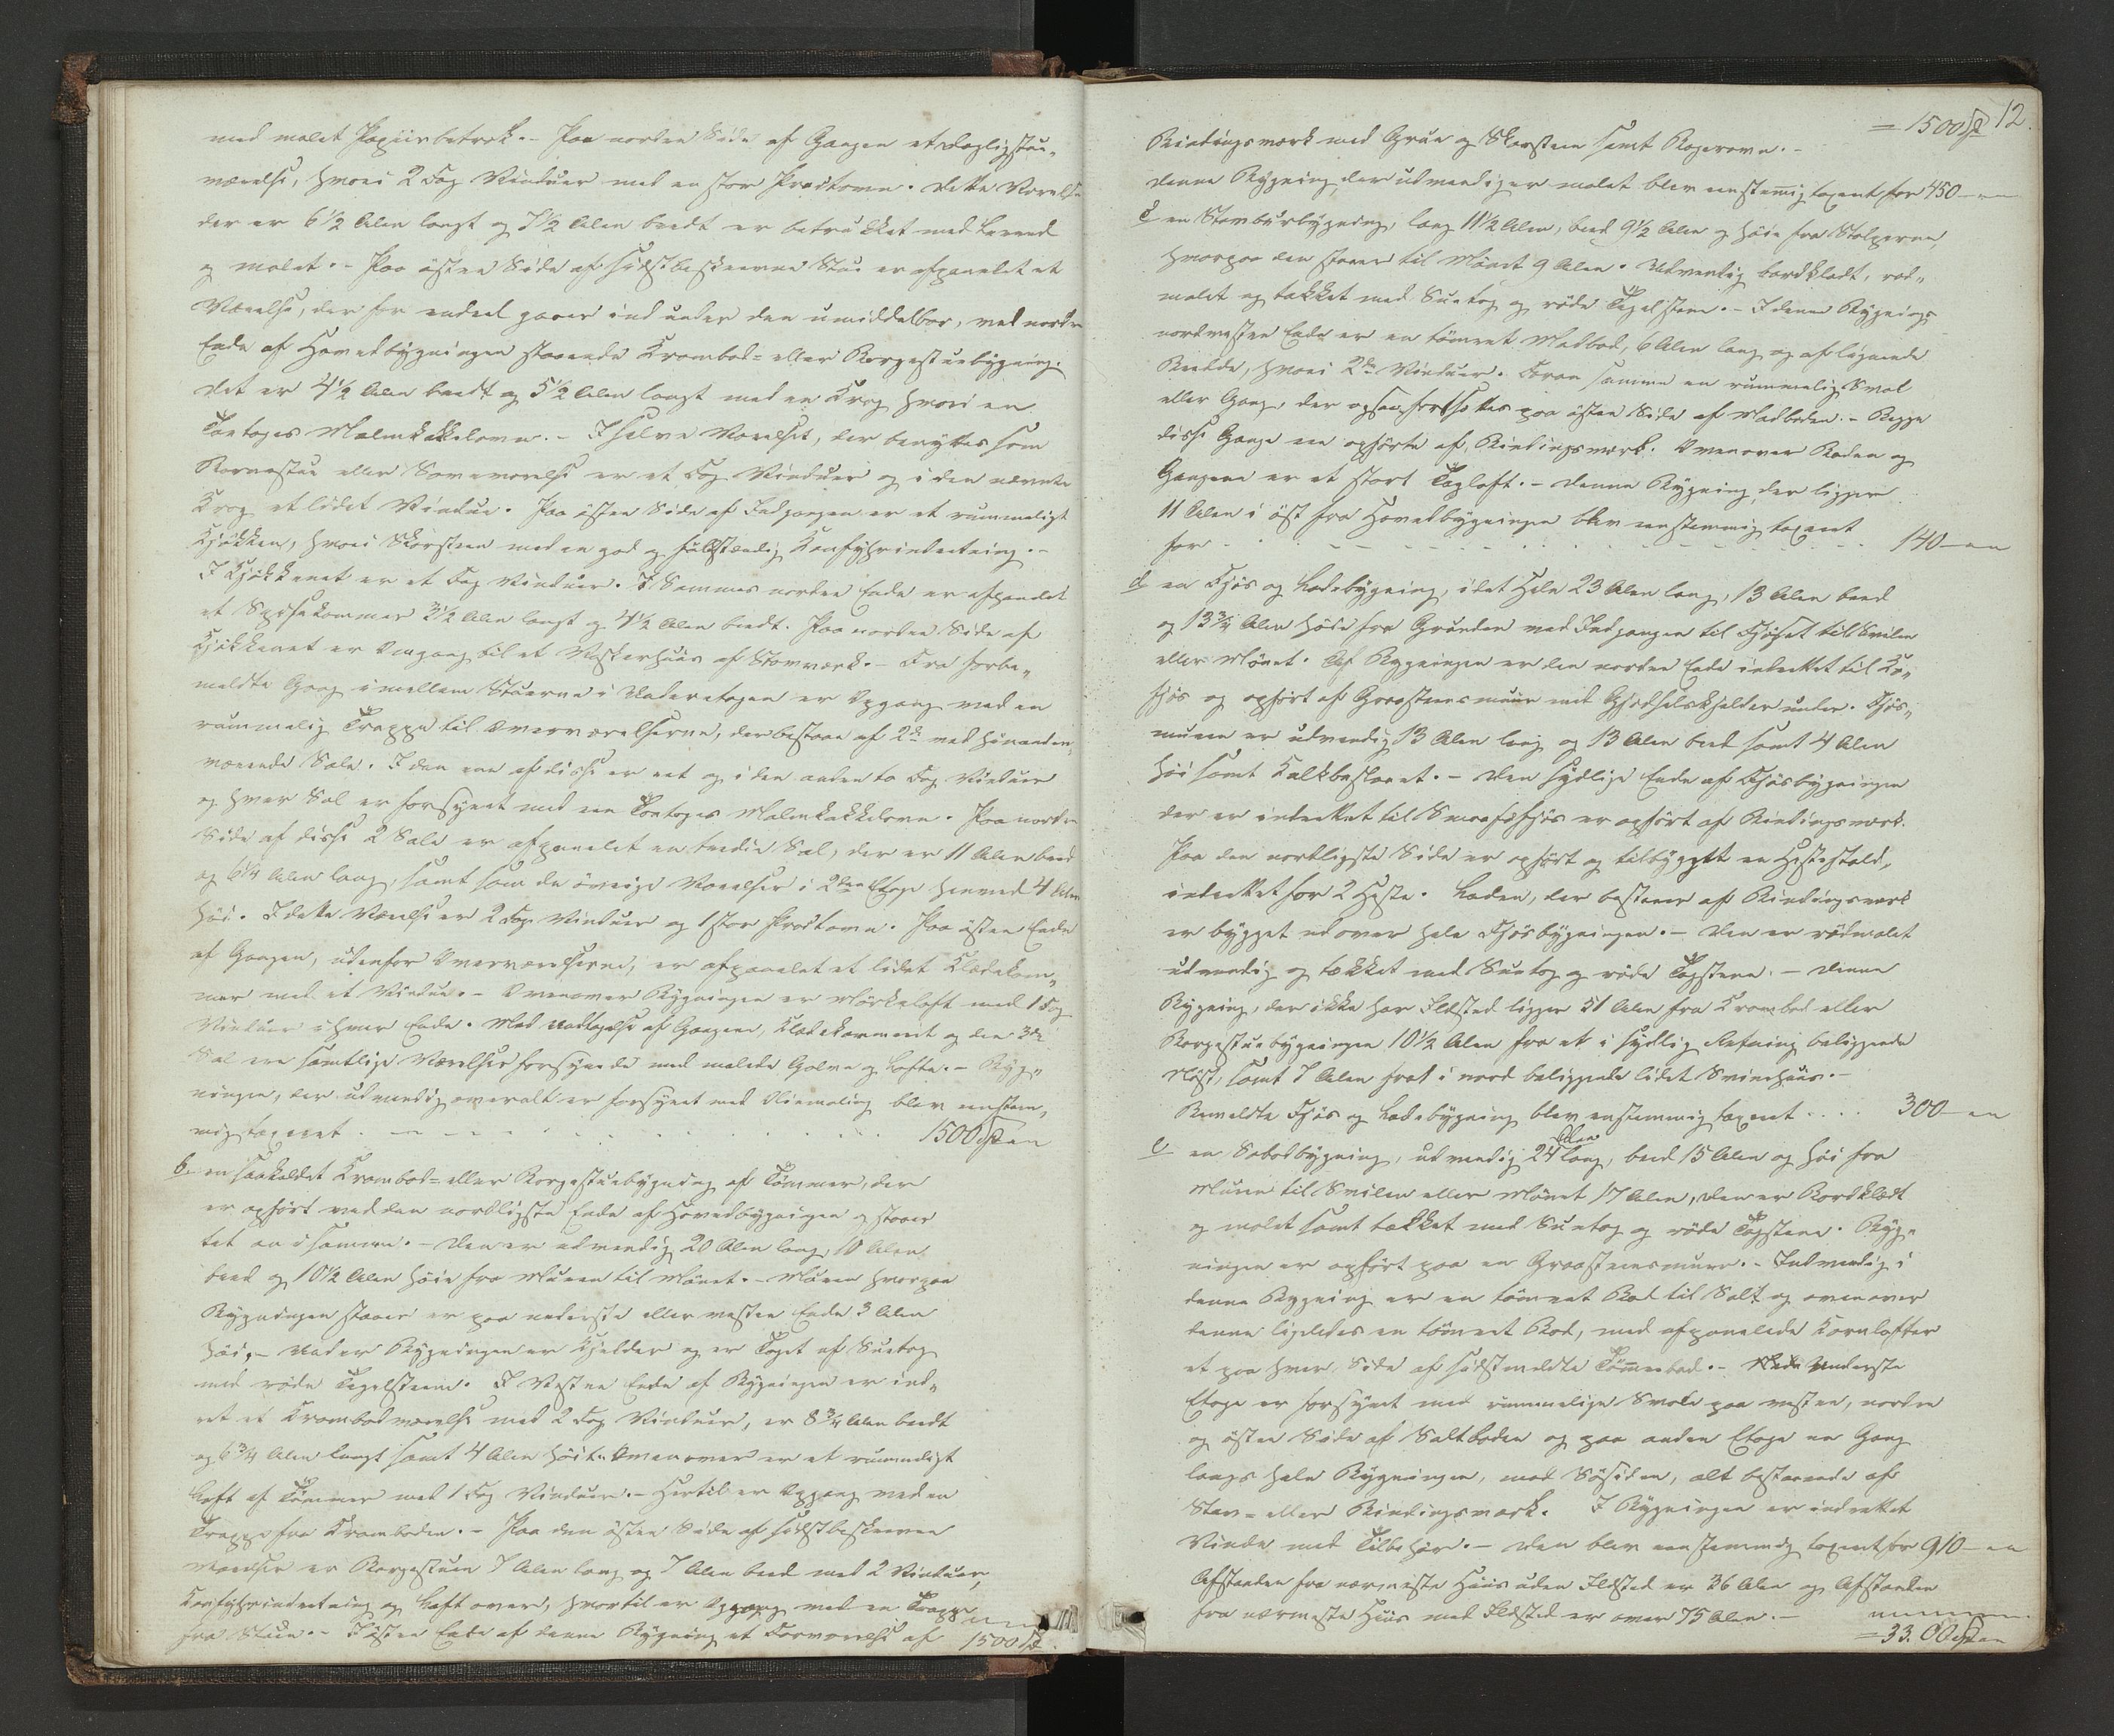 med malet Papiirbetræk. - Paa norden Side af Gangen et Dagligstue-
værelse, hvori 2 Fag Vinduer med en stor Pragtovn. Dette Værelse
der er 6 1/2 Alen langt og 7 1/2 Alen bredt er betrukket med Lærred
og malet. - Paa østen Side af sidstbeskrevne Stue er afpanelet et
Værelse, der for endeel gaaer ind under den umiddelbar, ved nordre
Ende af Hovedbygningen staaende Krambod- eller Borgestuebygning.
Det er 4 1/2 Alen bredt og 5 1/2 Alen langt med en Krog hvori en
Toetages Malmkakkelovn. - I selve Værelset, der benyttes som
Barnestue eller Soveværelse er et Fag Vinduer og i den nævnte
Krog et lidet Vindue. Paa østen Side af Indgangen er et rummeligt
Kjøkken, hvori Skorsteen med en god og fuldstændig Komfyrindretning. -
I Kjøkkenet er et Fag Vinduer. I Sammes nordre Ende er afpanelet
et Spisekammer 3 1/2 Alen langt og 4 1/2 Alen bredt. Paa norden Side af
Kjøkkenet er Omgang til et Vaskerhuus af Stavværk. - Fra forbe-
meldte Gang imellem Stuerne i Underetagen er Opgang med en
rummelig Trappe til Overværelserne, der bestaae af 2de ved hinanden
værende Sale. I den ene af disse er eet og i den anden to Fag Vinduer
og hver Sal er forsynet med een Toetages Malmkakkelovn. Paa norden
Side af disse 2 Sale er afpanelet en tredie Sal, der er 11 Alen bred
og 6 1/4 Alen lang, samt som de øvrige Værelser i 2den Etage henved 4 Alen
høi. I dette Værelse er 2 Fag Vinduer og 1 stor Pragtovn. Paa østen Ende
af Gangen, udenfor Overværelserne, er afpanelet et lidet Klædekam-
mer med et Vindue. - Ovenover Bygningen er Mørkeloft med 1 Fag
Vinduer i hver Ende. Med Undtagelse af Gangene, Klædekammeret og den 3die
Sal ere samtlige Værelser forsynede med malede Golve og Lofte. - Byg-
ningen, der udvendig overalt er forsynet med Oliemaling blev eenstem-
mig taxeret . - - - . . . . . . . 1500 Spd
b. en saakaldet Krambod- eller Borgestuebygning af Tømmer, der
er opført ved den nordligste Ende af Hovedbygningen og staaer
tæt an i samme. - Den er udvendig 20 Alen lang, 10 Alen
bred og 10 1/2 Alen høie fra Muren til Mønet. - Muren hvorpaa
Bygningen staaer er paa nederste eller vesten Ende 3 Alen
høi. - Under Bygningen er Kjelder og er Taget af Suetag
med røde Tegelsteene. I Vestre Ende af Bygningen er ind-
ret et Krambodværelse med 2 Fag Vinduer, er 8 3/4 Alen bredt
og 6 3/4 Alen langt samt 4 Alen høit. Ovenover er et rummeligt
Loft af Tømmer med 1 Fag Vinduer. - Hertil er Opgang med en
Trappe fra Kramboden. - Paa den østen Side af sidstbeskrevne
Værelse er Borgestuen 7 Alen lang og 7 Alen bred med 2 Vinduer,
Komfyrindretning og Loft over, hvortil er Opgang med en Trappe
fra Stuen. - I østen Ende af denne Bygning et Forværelse af 1500 Spd.
= 1500 Spd 12.
Bindingsværk med Gruue og Skorsteen samt Bagerovn. -
Denne Bygning der udvendig er malet blev eenstemig taxeret for 450 -
c en Stabbursbygning, lang 11 1/2 Alen, bred 9 1/2 Alen og høie fra Stolperne,
hvorpaa den staaer til Mønet 9 Alen. Udvendig bordklædt, rød-
malet og takket med Suetag og røde Tegelstene. - I denne Bygnings
nordvesten Ende er en tømret Madbod, 6 Alen lang og af lignende
Bredde, hvori 2de Vinduer. Foran samme en rummelig Sval
eller Gang, der ogsaa fortsættes paa østen Side af Madboden. - Begge
disse Gange ere opførte af Bindingsværk. Ovenover Boden og
Gangene er et stort Tagloft. - Denne Bygning der ligger
11 Alen i øst fra Hovedbygningen blev eenstemmig taxeret
for . . . - - - - - . . . . . 140 -
d en Fjøs og Ladebygning, i det Hele 23 Alen lang, 13 Alen bred
og 13 3/4 Alen høie fra Grunden med Indgangen til Fjøset til Svilen
eller Mønet. Af Bygningen er den norden Ende indrettet til Ko-
fjøs og opført af Graasteensmuur med Gjødselskjelder under. Fjøs-
muren er udvendig 13 Alen lang og 13 Alen bred samt 4 Alen
høi samt Kalkbeslaaet. - Den sydlige Ende af Fjøsbygningen
der er indrettet til Smaafæfjøs er opført af Bindingsværk.
Paa den nordligste Side er opført og tilbygget en Hestestald,
indrettet for 2 Heste. Laden, der bestaaer af Bindingsværk
er bygget udover hele Fjøsbygningen. - Den er rødmalet
udvendig og tækket med Suetag og røde Tagstene. - Denne
Bygning, der ikke har Ildsted ligger 51 Alen fra Krambod eller
Borgestuebygningen 10 1/2 Alen fra et i sydlig Retning beliggende
Nøst, samt 7 Alen fra et i nord beliggende lidet Svinehuus. -
Bemeldte Fjøs og Ladebygning blev enstemmig taxeret . . . . 300 -
e en Søbodbygning, udvendig 24 Alen lang, bred 15 Alen og høi fra
Muren til Svilen eller Mønet 17 Alen, den er Bordklædt
og malet samt tækket med Suetag og røde Tagstene. Byg-
ningen er opført paa en Graasteensmuur. - Indvendig i
denne Bygning er en tømret Bod til Salt og ovenover
denne ligeledes en tømret Bod, med afpanelede Kornlofter
et paa hver Side af sidstmeldte Tømmerbod. - Underste
Etage er forsynet med rummelige Svale paa vesten, norden
og østen Side af Saltboden og paa anden Etage en Gang
langs hele Bygningen, mod Søsiden, alt bestaaende af
Stav- eller Bindingsværk. I Bygningen er indrettet
Vinde med Tilbehør. - Den blev eenstemmig taxeret for 910 -
Afstanden fra nærmeste Huus uden Ildsted er 36 Alen og Afstanden
fra nærmeste Huus med Ildsted er over 75 Alen. -
= 33.00 Spd